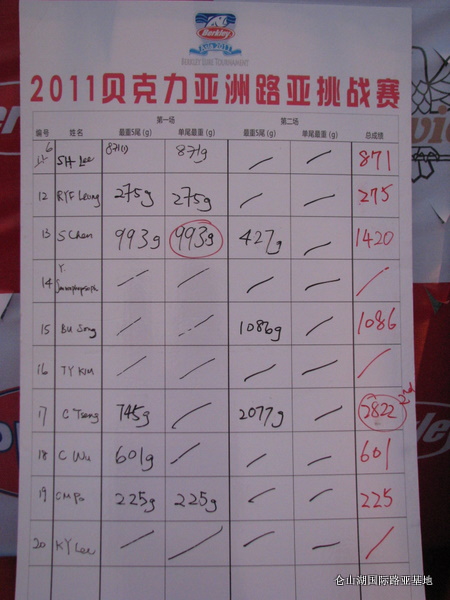 Berkley
ASIA 2011
BERKLEY LURE TOURNAMENT
2011贝克力亚洲路亚挑战赛
第一场 第二场
编号 姓名 最重5尾(g) 单尾最重(g) 最重5尾(g) 单尾最重(g) 总成绩
SH Lee 871(1) 871g — — 871
12 RYF Leong 275g 275g — — 275
13 S Chen 993g 993g 427g — 1420
14 Y. — — — — /
15 BU Song — — 1086g — 1086
16 TY KIM — — — — /
17 C Tseng 745g — 2077g — 2822
18 C Wu 601g — — — 601
19 CM Pu 225g 225g — — 225
20 KY Lee — — — — /
仓山湖国际路亚基地